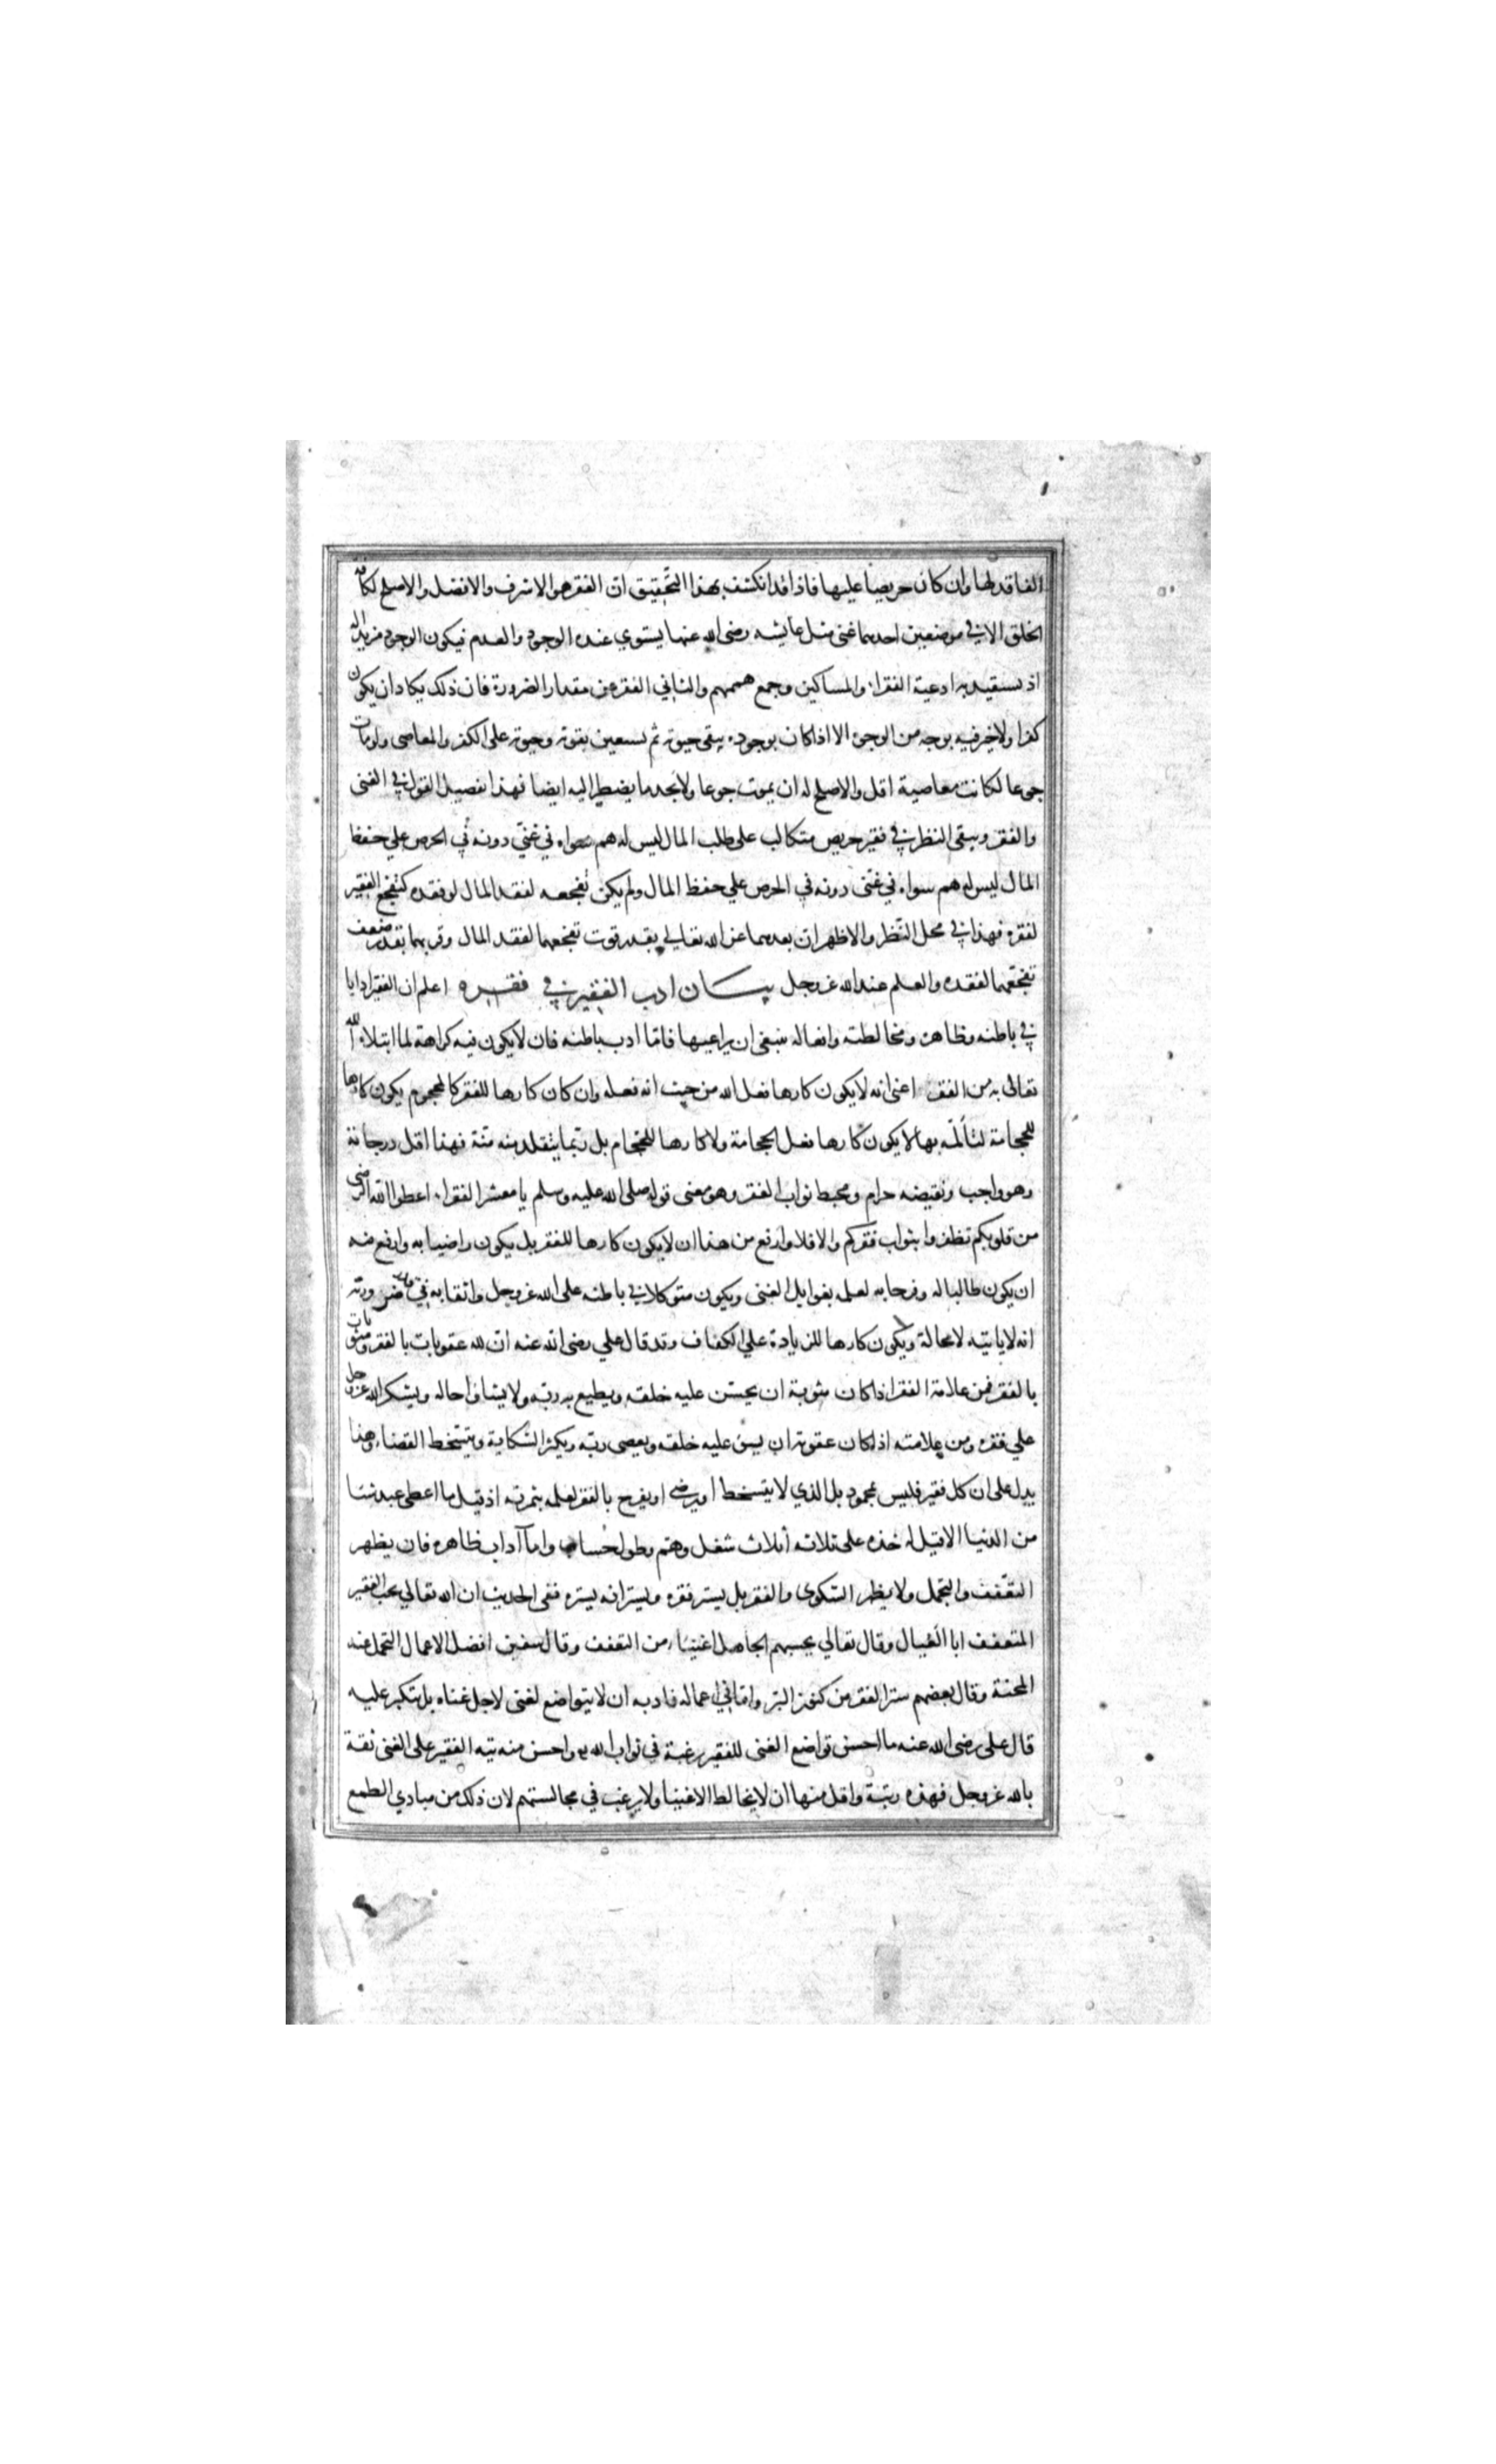 الفاقد لها وان كان حريصا عليها فاذا قد انكشف بهذا التحقيق ان الفقر هو الاشرف والافضل والاصلح لكافة
الخلق الا في موضعين احدهما غنى مثل عايشه رضى الله عنها يستوي عنده الوجود والعدم فيكون الوجود مزيدا له
اذ يستفيد به ادعية الفقراء والمساكين وجمع هممهم والثاني الفقر عن مقدار الضرورة فان ذلك يكاد ان يكون
كفرا ولا خير فيه بوجه من الوجوه الا اذا كان بوجوده يبقى حيوته ثم يستعين بقوته وحيوته على الكفر والمعاصى ولو مات
جوعا لكانت معاصية اقل والاصلح له ان يموت جوعا ولا يجد ما يضطر اليه ايضا فهذا تفصيل القول في الغنى
والفقر ويبقى النظر في فقير حريص متكالب على طلب المال ليس له هم سواه في غنّي دونه في الحرص علي حفظ
المال ليس له هم سواه في غنّى دونه في الحرص علي حفظ المال ولم يكن تفجعه لفقد المال لو فقده كتفجع الفقير
لفقره فهذا في محل النّظر والاظهر ان بعدهما عن الله تعالي بقدر قوت تفجعهما لفقد المال وقربهما بقدر ضعف
تفجعهما لفقده والعلم عند الله عز وجل بيان ادب الفقير في فقره اعلم ان الفقير ادابا
في باطنه وظاهره ومخالطته وافعاله ينبغى ان يراعيها فامّا ادب باطنه فان لا يكون فيه كراهة لما ابتلاه الله
تعالى به من الفقر اعنى انه لا يكون كارها فعل الله من حيث انه فعله وان كان كارها للفقر كالمحجوم يكون كارها
للحجامة لتألمّه بها لا يكون كارها فعل الحجامة ولا كارها للحجّام بل ربّما يتقلد منه منّة فهذا اقل درجاته
وهو واجب ونقيضه حرام ومحبط ثواب الفقر وهو معنى قوله صلى الله عليه وسلم يا معشر الفقراء اعطوا الله الرضى
من قلوبكم تظفروا بثواب فقركم والا فلا وارفع من هذا ان لا يكون كارها للفقر بل يكون راضيا به وارفع منه
ان يكون طالبا له وفرحا به لعلمه بغوايل الغنى ويكون متوكلا في باطنه على الله عز وجل واثقا به في قدر ضرورته
انه لا ياتيه لا محالة ويكون كارها للزيادة علي الكفاف وقد قال علي رضى الله عنه ان لله عقوبات بالفقر ومثوبات
بالفقر فمن علامة الفقر اذا كان مثوبة ان يحسّن عليه خلقه ويطيع به ربّه ولا يشكوا حاله ويشكر الله عز وجل
علي فقره ومن علامته اذا كان عقوبة ان يسئ عليه خلقه ويعصى ربّه ويكثر الشكاية ويتسخط القضاء وهذا
يدل على ان كل فقير فليس بمحمود بل الذي لا يتسخط او يرضى او يفرح بالفقر لعلمه بثمرته اذ قيل ما اعطى عبد شئا
من الدنيا الا قيل له خذه على ثلاثه أثلاث شغل وهّم وطول حُساب واما آداب ظاهره فان يظهر
التعّفف والتجمّل ولا يظهر الشكوى والفقر بل يستر فقره ويستر انه يستره ففى الحديث ان الله تعالي يحب الفقير
المتعفف ابا العيال وقال تعالي يحسبهم الجاهل اغنياء من التعفف وقال سفين افضل الاعمال التجمل عند
المحنة وقال بعضهم ستر الفقر من كنوز البّر وامّا في اعماله فادبه ان لا يتواضع لغنى لاجل غناه بل يتكبر عليه
قال على رضى الله عنه ما احسن تواضع الغنى للفقير رغبة في ثواب الله واحسن منه تيه الفقير على الغنى ثقة
بالله عز وجل فهذه رتبة واقل منها ان لا يخالط الاغنيا ولا يرغب في مجالستهم لان ذلك من مبادي الطمع